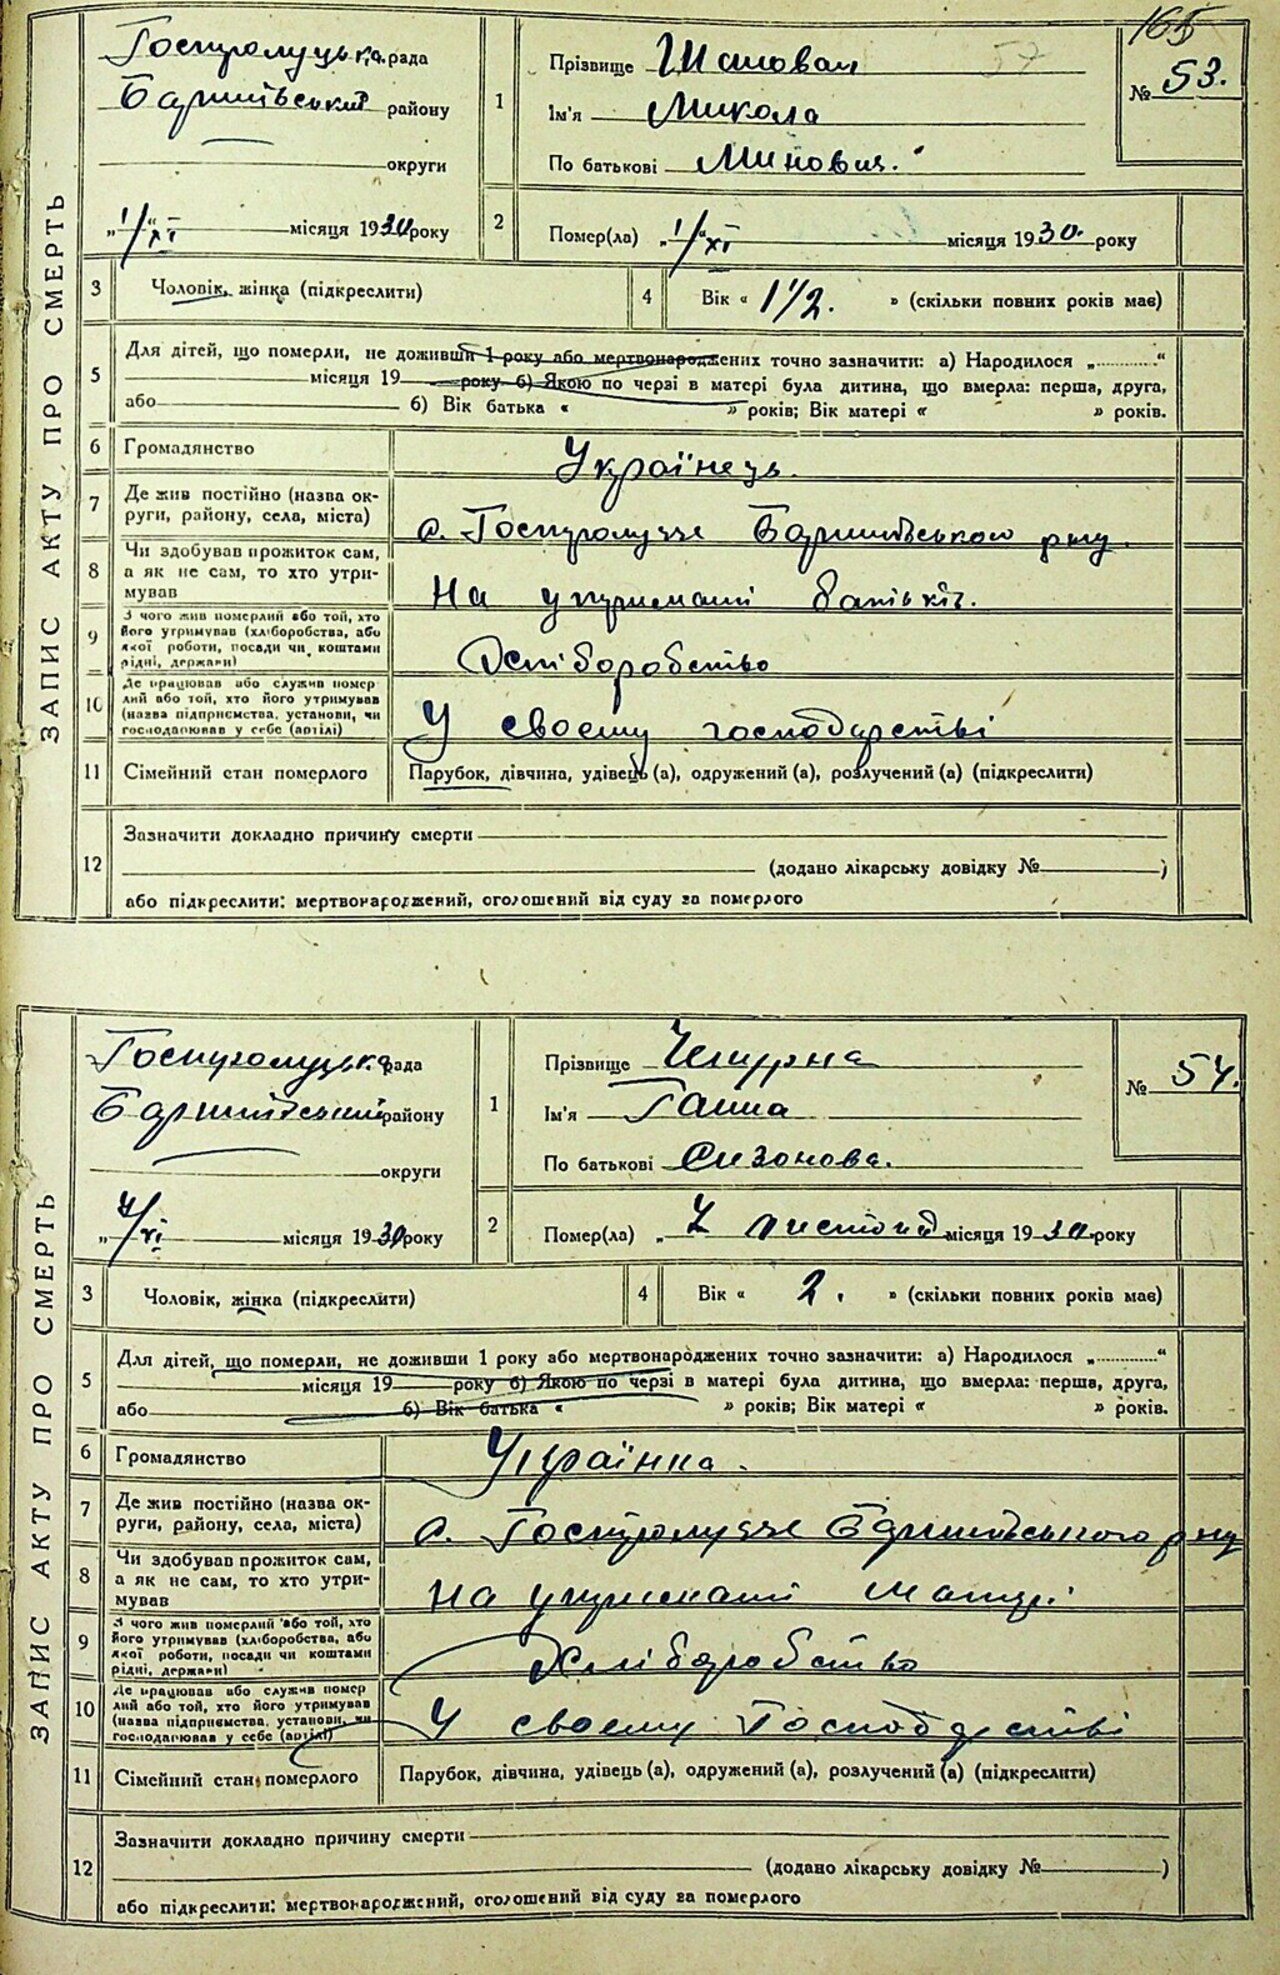 165
ЗАПИС АКТУ ПРО СМЕРТЬ
Гостролуцька рада
Баришівський району
округи
„1/XI“ місяця 1930 року
1
Прізвище Шаповал
57
Ім'я Микола
По батькові Минович.
№ 53.
2
Помер(ла) „1/XI“ місяця 1930. року
3
Чоловік, жінка (підкреслити)
4
Вік « 1 1/2. » (скільки повних років має)
5
Для дітей, що померли, не доживши 1 року або мертвонароджених точно зазначити: а) Народилося „..........“
місяця 19 року б) Якою по черзі в матері була дитина, що вмерла: перша, друга,
або б) Вік батька « » років; Вік матері « » років.
6
Громадянство
Українець.
7
Де жив постійно (назва ок-
руги, району, села, міста)
с. Гостролуччє Баришівського р-ну
8
Чи здобував прожиток сам,
а як не сам, то хто утри-
мував
На утриманні батьків.
9
З чого жив померлий або той, хто
його утримував (хліборобства, або
якої роботи, посади чи коштами
рідні, держави)
Хліборобство
10
Де працював або служив помер
лий або той, хто його утримував
(назва підприємства, установи, чи
господарював у себе (артілі)
У своєму господарстві
11
Сімейний стан померлого
Парубок, дівчина, удівець (а), одружений (а), розлучений (а) (підкреслити)
12
Зазначити докладно причину смерти
(додано лікарську довідку № )
або підкреслити: мертвонароджений, оголошений від суду за померлого
ЗАПИС АКТУ ПРО СМЕРТЬ
Гостролуцька рада
Баришівський району
округи
„4/XI місяця 1930 року
1
Прізвище Чепурна
Ім'я Ганна
По батькові Сизонова.
№ 54.
2
Помер(ла) „ листопад місяця 1930. року
3
Чоловік, жінка (підкреслити)
4
Вік « 2. » (скільки повних років має)
5
Для дітей, що померли, не доживши 1 року або мертвонароджених точно зазначити: а) Народилося „..........“
місяця 19 року б) Якою по черзі в матері була дитина, що вмерла: перша, друга,
або б) Вік батька « » років; Вік матері « » років.
6
Громадянство
Українка.
7
Де жив постійно (назва ок-
руги, району, села, міста)
с. Гостролуччє Баришівського р-ну
8
Чи здобував прожиток сам,
а як не сам, то хто утри-
мував
На утриманні матері
9
З чого жив померлий або той, хто
його утримував (хліборобства, або
якої роботи, посади чи коштами
рідні, держави)
Хліборобство
10
Де працював або служив помер
лий або той, хто його утримував
(назва підприємства, установи, чи
господарював у себе (артілі)
У своєму Господарстві
11
Сімейний стан померлого
Парубок, дівчина, удівець (а), одружений (а), розлучений (а) (підкреслити)
12
Зазначити докладно причину смерти
(додано лікарську довідку № )
або підкреслити: мертвонароджений, оголошений від суду за померлого